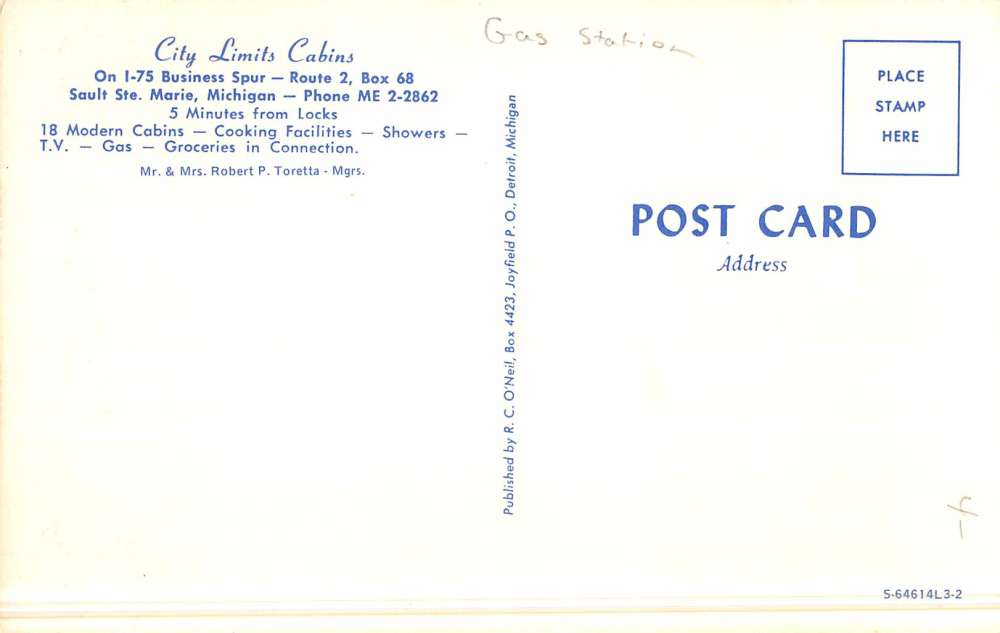 Gas Station
City Limits Cabins
On I-75 Business Spur — Route 2, Box 68
Sault Ste. Marie, Michigan — Phone ME 2-2862
5 Minutes from Locks
18 Modern Cabins — Cooking Facilities — Showers —
T.V. — Gas — Groceries in Connection.
Mr. & Mrs. Robert P. Toretta - Mgrs.
Published by R. C. O'Neil, Box 4423, Joyfield P. O., Detroit, Michigan
PLACE
STAMP
HERE
POST CARD
Address
S-64614L3-2